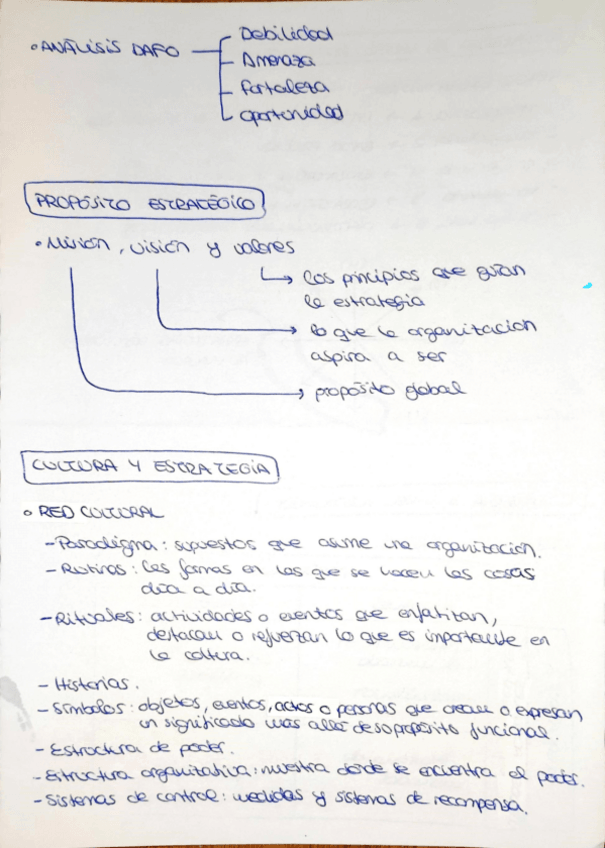 • ANÁLISIS DAFO
Debilidad
Amenaza
Fortaleza
Oportunidad
PROPÓSITO ESTRATÉGICO
• Misión, visión y valores
Los principios que guían
la estrategia
lo que la organización
aspira a ser
propósito global
CULTURA Y ESTRATEGIA
• RED CULTURAL
- Paradigma: supuestos que asume una organización.
- Rutinas: Las formas en las que se hacen las cosas
día a día.
- Rituales: actividades o eventos que enfatizan,
destacan o refuerzan lo que es importante en
la cultura.
- Historias.
- Símbolos: objetos, eventos, actos o personas que crean o expresan
un significado más allá de su propósito funcional.
- Estructura de poder.
- Estructura organizativa: muestra donde se encuentra el poder.
- Sistemas de control: medidas y sistemas de recompensa.